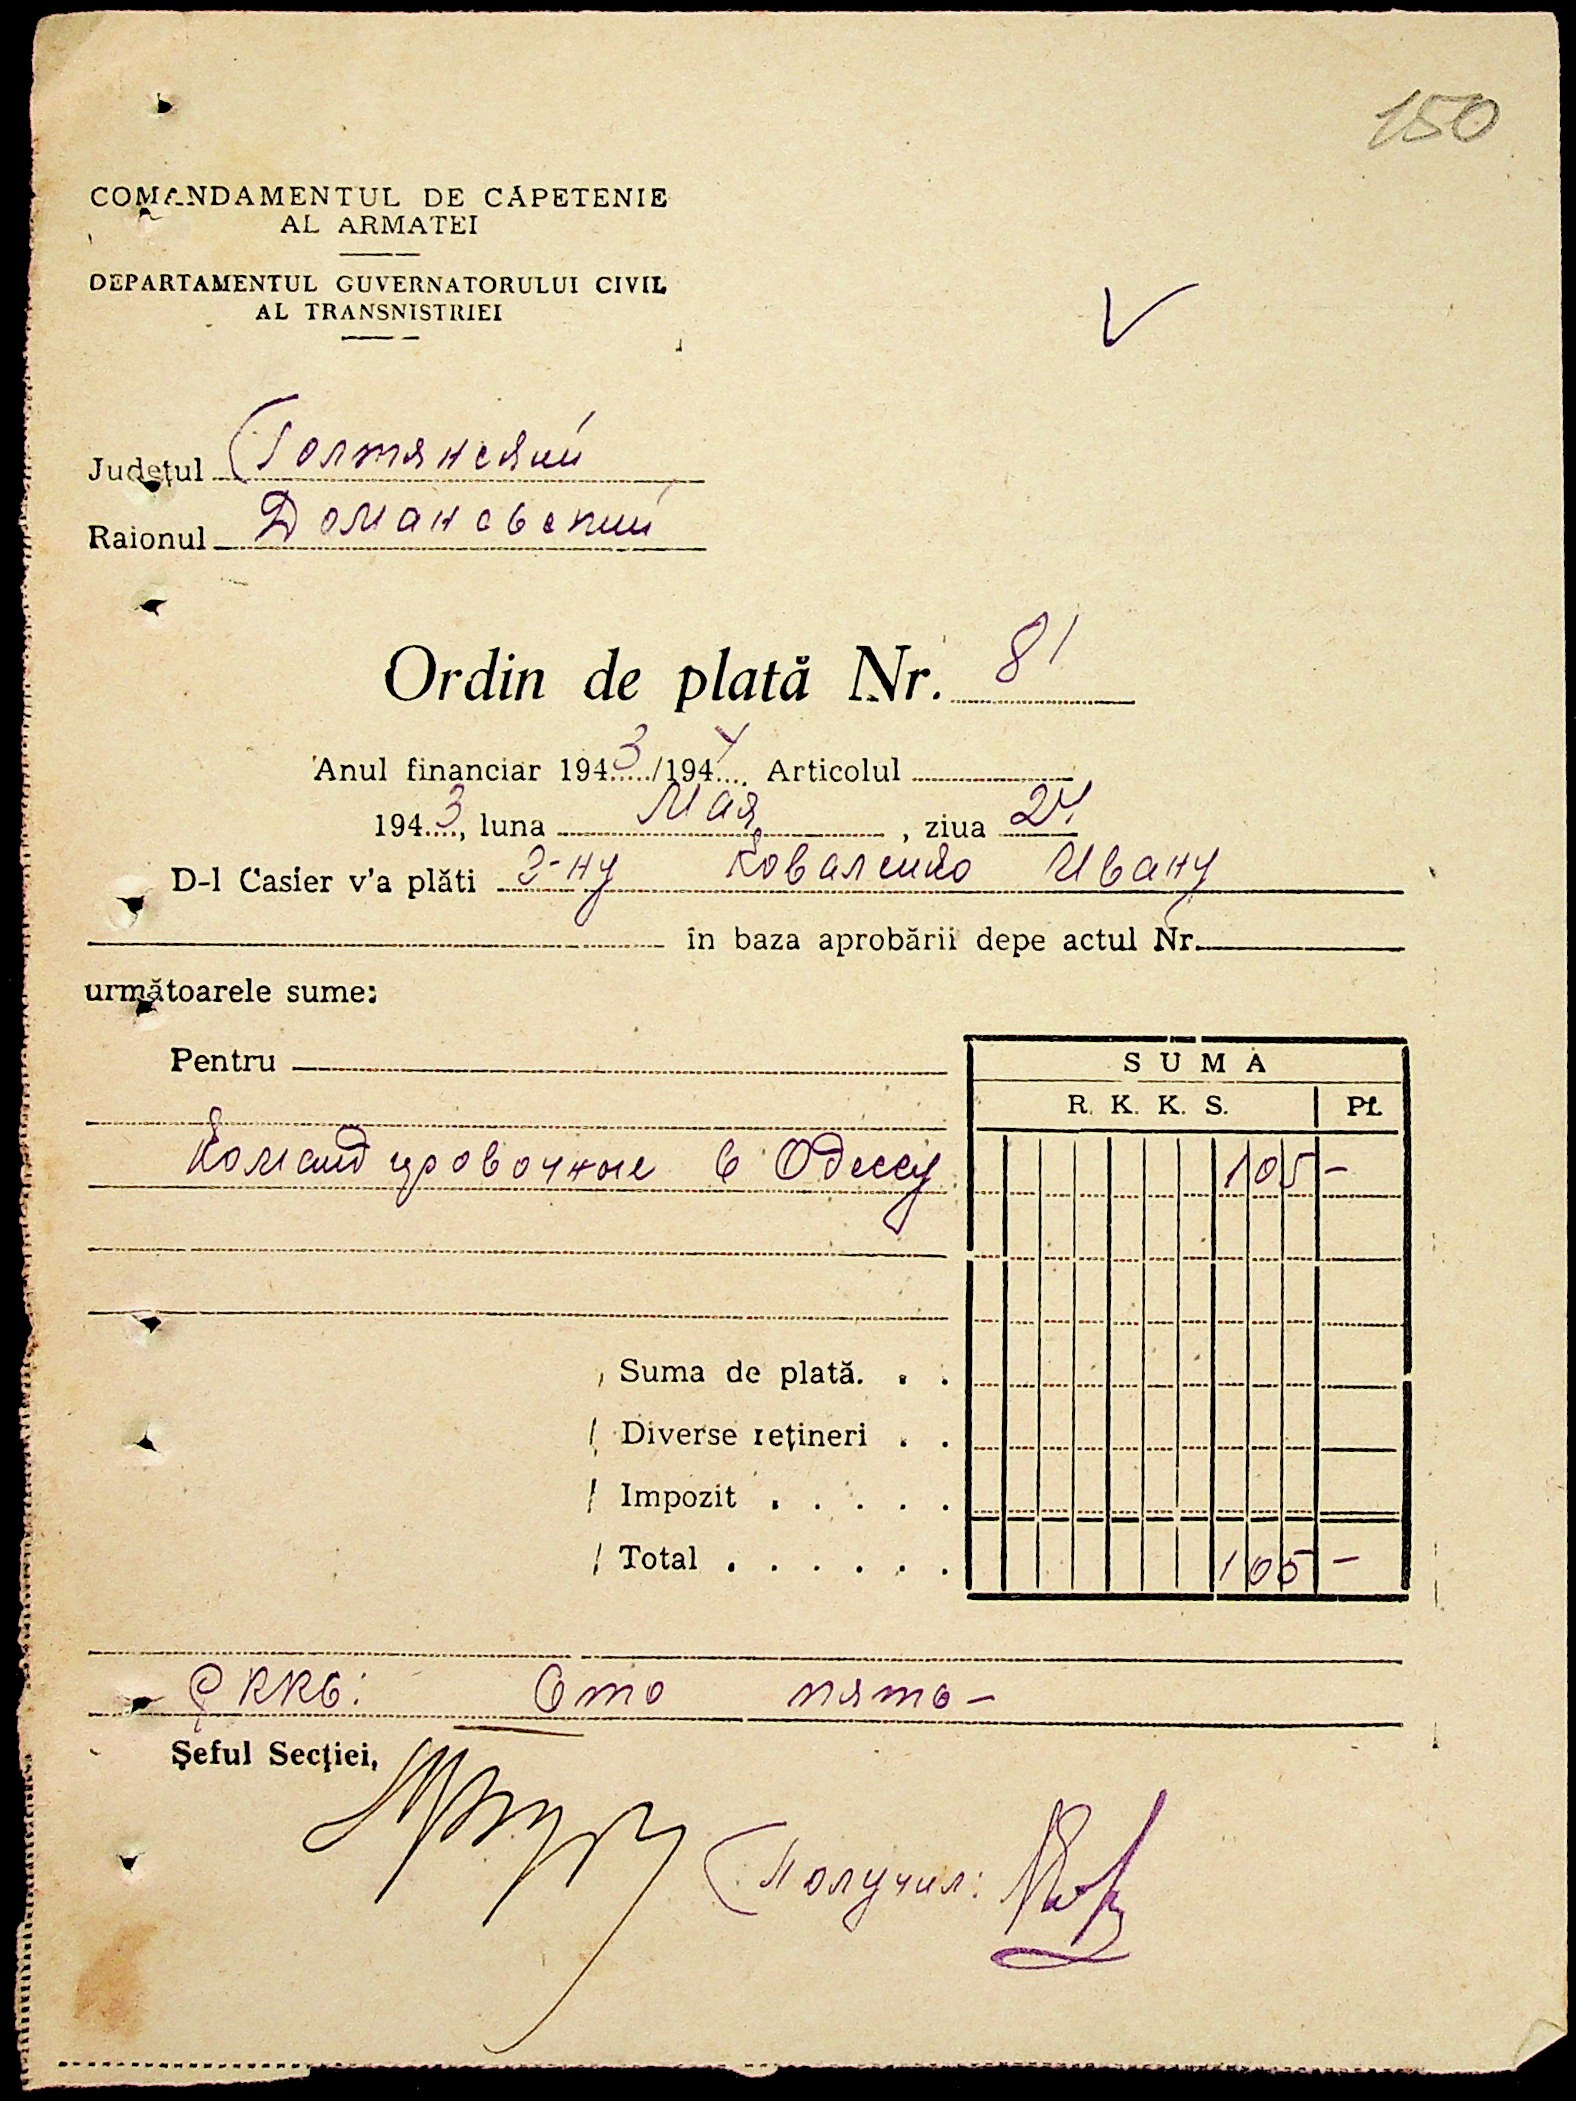 150
COMANDAMENTUL DE CĂPETENIE
AL ARMATEI
DEPARTAMENTUL GUVERNATORULUI CIVIL
AL TRANSNISTRIEI
Județul Голтянский
Raionul Домановский
Ordin de plată Nr. 81
Anul financiar 1943/1944 Articolul
1943, luna Мая, ziua 24
D-l Casier v'a plăti г-ну Коваленко Ивану
în baza aprobării depe actul Nr.
următoarele sume:
Pentru
SUMA
R. K. K. S. Pf.
Командировочные в Одессу 105 -
Suma de plată. . .
Diverse rețineri . .
Impozit . . . . .
Total . . . . . . 105 -
РККС: Сто пять -
Șeful Secției,
Получил: